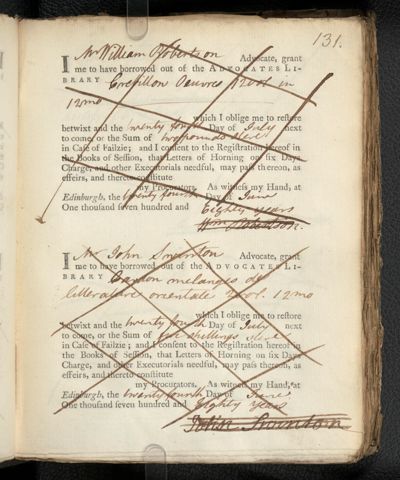 131.
I Mr William Robertson Advocate, grant
me to have borrowed out of the ADVOCATES LI-
BRARY Crebillon Oeuvres 2 vol in
12mo
which I oblige me to restore
betwixt and the twenty fourth Day of July next
to come, or the Sum of
in Case of Failzie; and I consent to the Registration hereof in
the Books of Session, that Letters of Horning on six Days
Charge, and other Executorials needful, may pass thereon, as
effeirs, and thereto constitute
my Procurators. As witness my Hand, at
Edinburgh, the twenty fourth Day of June
One thousand seven hundred and Eighty years
Wm Robertson.
I Mr John Swinton Advocate, grant
me to have borrowed out of the ADVOCATES LI-
BRARY melanges de
litterature orientale 2 vol. 12mo
which I oblige me to restore
betwixt and the twenty fourth Day of July next
to come, or the Sum of shillings
in Case of Failzie; and I consent to the Registration hereof in
the Books of Session, that Letters of Horning on six Days
Charge, and other Executorials needful, may pass thereon, as
effeirs, and thereto constitute
my Procurators. As witness my Hand, at
Edinburgh, the twenty fourth Day of June
One thousand seven hundred and Eighty years
John Swinton